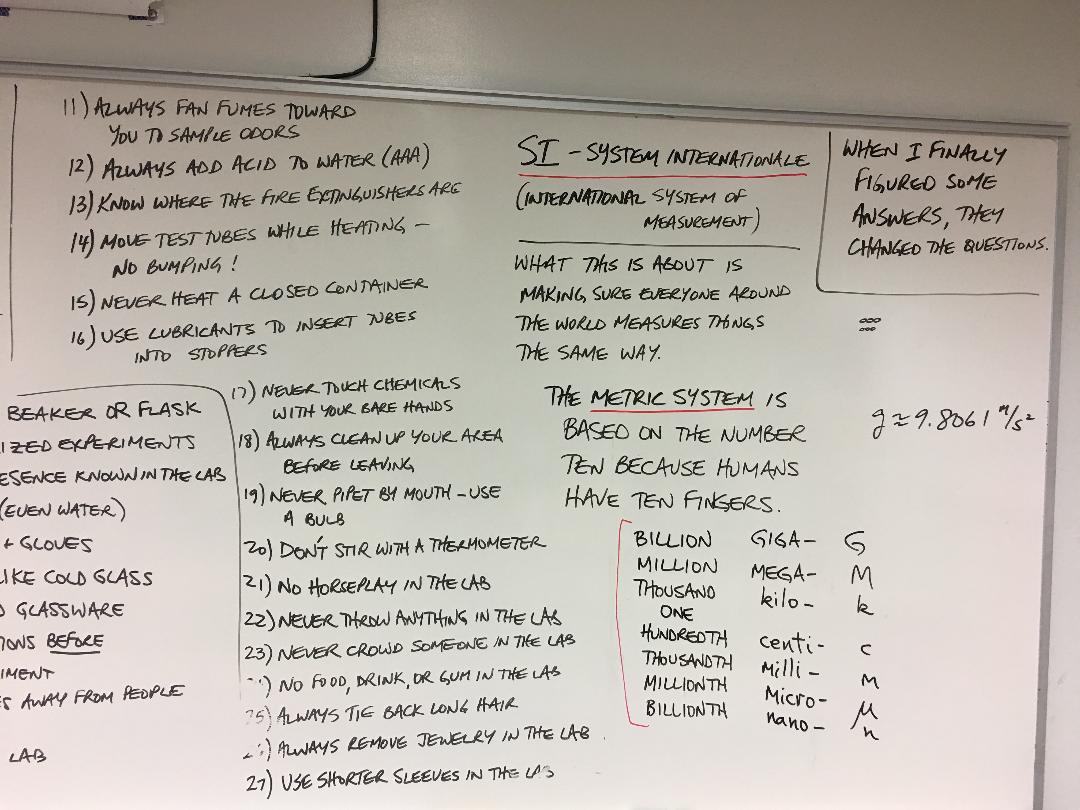 11) ALWAYS FAN FUMES TOWARD
YOU TO SAMPLE ODORS
12) ALWAYS ADD ACID TO WATER (AAA)
13) KNOW WHERE THE FIRE EXTINGUISHERS ARE
14) MOVE TEST TUBES WHILE HEATING –
NO BUMPING!
15) NEVER HEAT A CLOSED CONTAINER
16) USE LUBRICANTS TO INSERT TUBES
INTO STOPPERS
BEAKER OR FLASK
IZED EXPERIMENTS
ESENCE KNOWN IN THE LAB
(EVEN WATER)
+ GLOVES
LIKE COLD GLASS
GLASSWARE
IONS BEFORE
IMENT
S AWAY FROM PEOPLE
LAB
17) NEVER TOUCH CHEMICALS
WITH YOUR BARE HANDS
18) ALWAYS CLEAN UP YOUR AREA
BEFORE LEAVING
19) NEVER PIPET BY MOUTH – USE
A BULB
20) DON'T STIR WITH A THERMOMETER
21) NO HORSEPLAY IN THE LAB
22) NEVER THROW ANYTHING IN THE LAB
23) NEVER CROWD SOMEONE IN THE LAB
) NO FOOD, DRINK, OR GUM IN THE LAB
25) ALWAYS TIE BACK LONG HAIR
2) ALWAYS REMOVE JEWELRY IN THE LAB.
27) USE SHORTER SLEEVES IN THE LAB
SI – SYSTEM INTERNATIONALE
(INTERNATIONAL SYSTEM OF
MEASUREMENT)
WHAT THIS IS ABOUT IS
MAKING SURE EVERYONE AROUND
THE WORLD MEASURES THINGS
THE SAME WAY.
THE METRIC SYSTEM IS
BASED ON THE NUMBER
TEN BECAUSE HUMANS
HAVE TEN FINGERS.
BILLION GIGA– G
MILLION MEGA– M
THOUSAND kilo– k
ONE
HUNDREDTH centi– c
THOUSANDTH Milli– M
MILLIONTH Micro– μ
BILLIONTH nano– n
WHEN I FINALLY
FIGURED SOME
ANSWERS, THEY
CHANGED THE QUESTIONS.
g ≈ 9.8061 m/s²